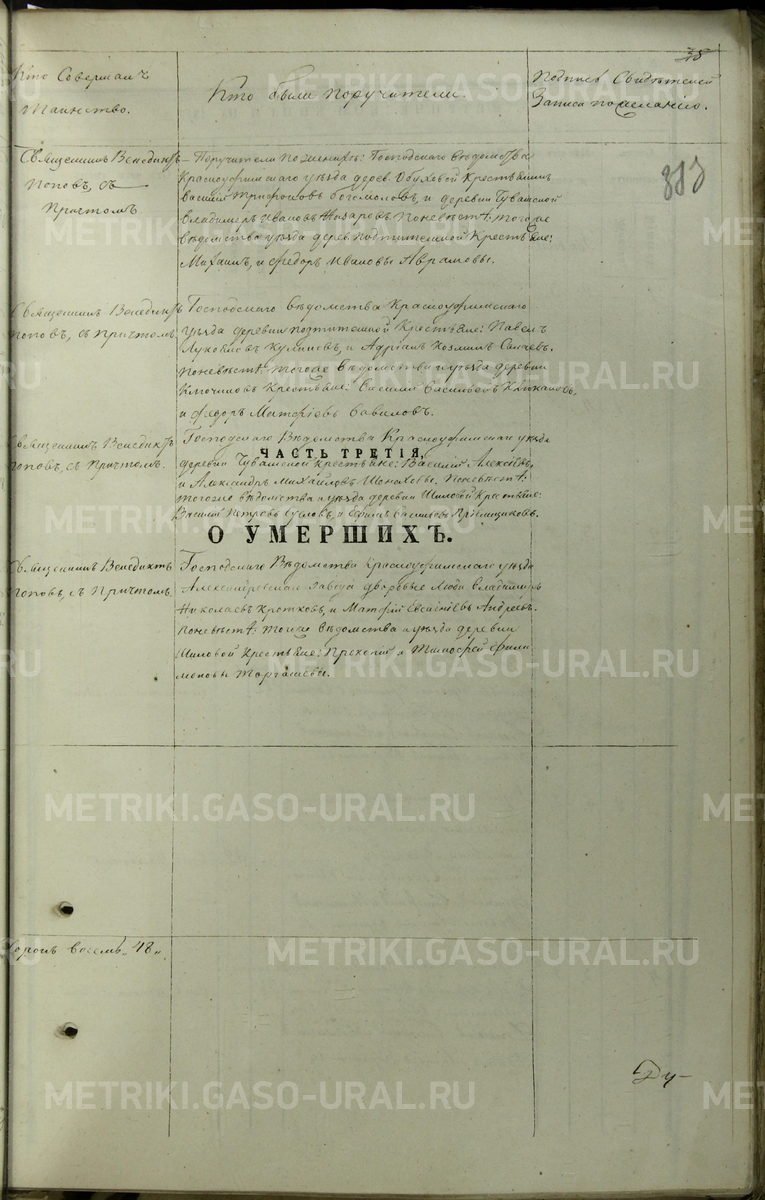 35
Кто Совершалъ
Таинство.
Кто были поручители
Подпись Свидѣтелей
Записи по желанію.
383
Священникъ Венедиктъ
Поповъ, съ
Причтомъ
Поручители по женихѣ: Господскаго вѣдомства
Красноуфимскаго уѣзда дерев. Крестьянин
Василий Трифоновъ Богомоловъ, и деревни Чувашской
Владимеръ Ивановъ Назаровъ по невѣстѣ: того же
вѣдомства уѣзда дерев. Крестьяне:
Михаилъ, и Федоръ Ивановы Аврамовы.
Священникъ Венедиктъ
Поповъ, съ Причтомъ.
Господскаго вѣдомства Красноуфимскаго
уѣзда деревни Крестьяне: Павелъ
Куликовъ, и Адріанъ Козминъ
по невѣстѣ того же вѣдомства и уѣзда деревни
Ключиковъ Крестьяне: Василий Васильевъ
и Федоръ Матфіевъ Савиловъ.
Священникъ Венедиктъ
Поповъ, съ Причтомъ.
Господскаго Вѣдомства Красноуфимскаго уѣзда
ЧАСТЬ ТРЕТІЯ,
деревни Чувашской крестьяне: Василий Алексѣевъ,
и Александръ Михайловъ по невѣстѣ:
того же вѣдомства и уѣзда деревни Шиловой Крестьяне:
Василий Петровъ Сусловъ, и Ефимъ Васильевъ
О УМЕРШИХЪ.
Священникъ Венедиктъ
Поповъ, съ Причтомъ.
Господскаго Вѣдомства Красноуфимскаго уѣзда
Александровскаго завода дворовые люди Владимиръ
Николаевъ Кротковъ, и Матфій Евсевіевъ Андреевъ.
по невѣстѣ: того же вѣдомства и уѣзда деревни
Шиловой Крестьяне: и Тимофей Фили
моновы Торгашевы.
Сорокъ восемь „48„
Ду-
METRIKI.GASO-URAL.RU